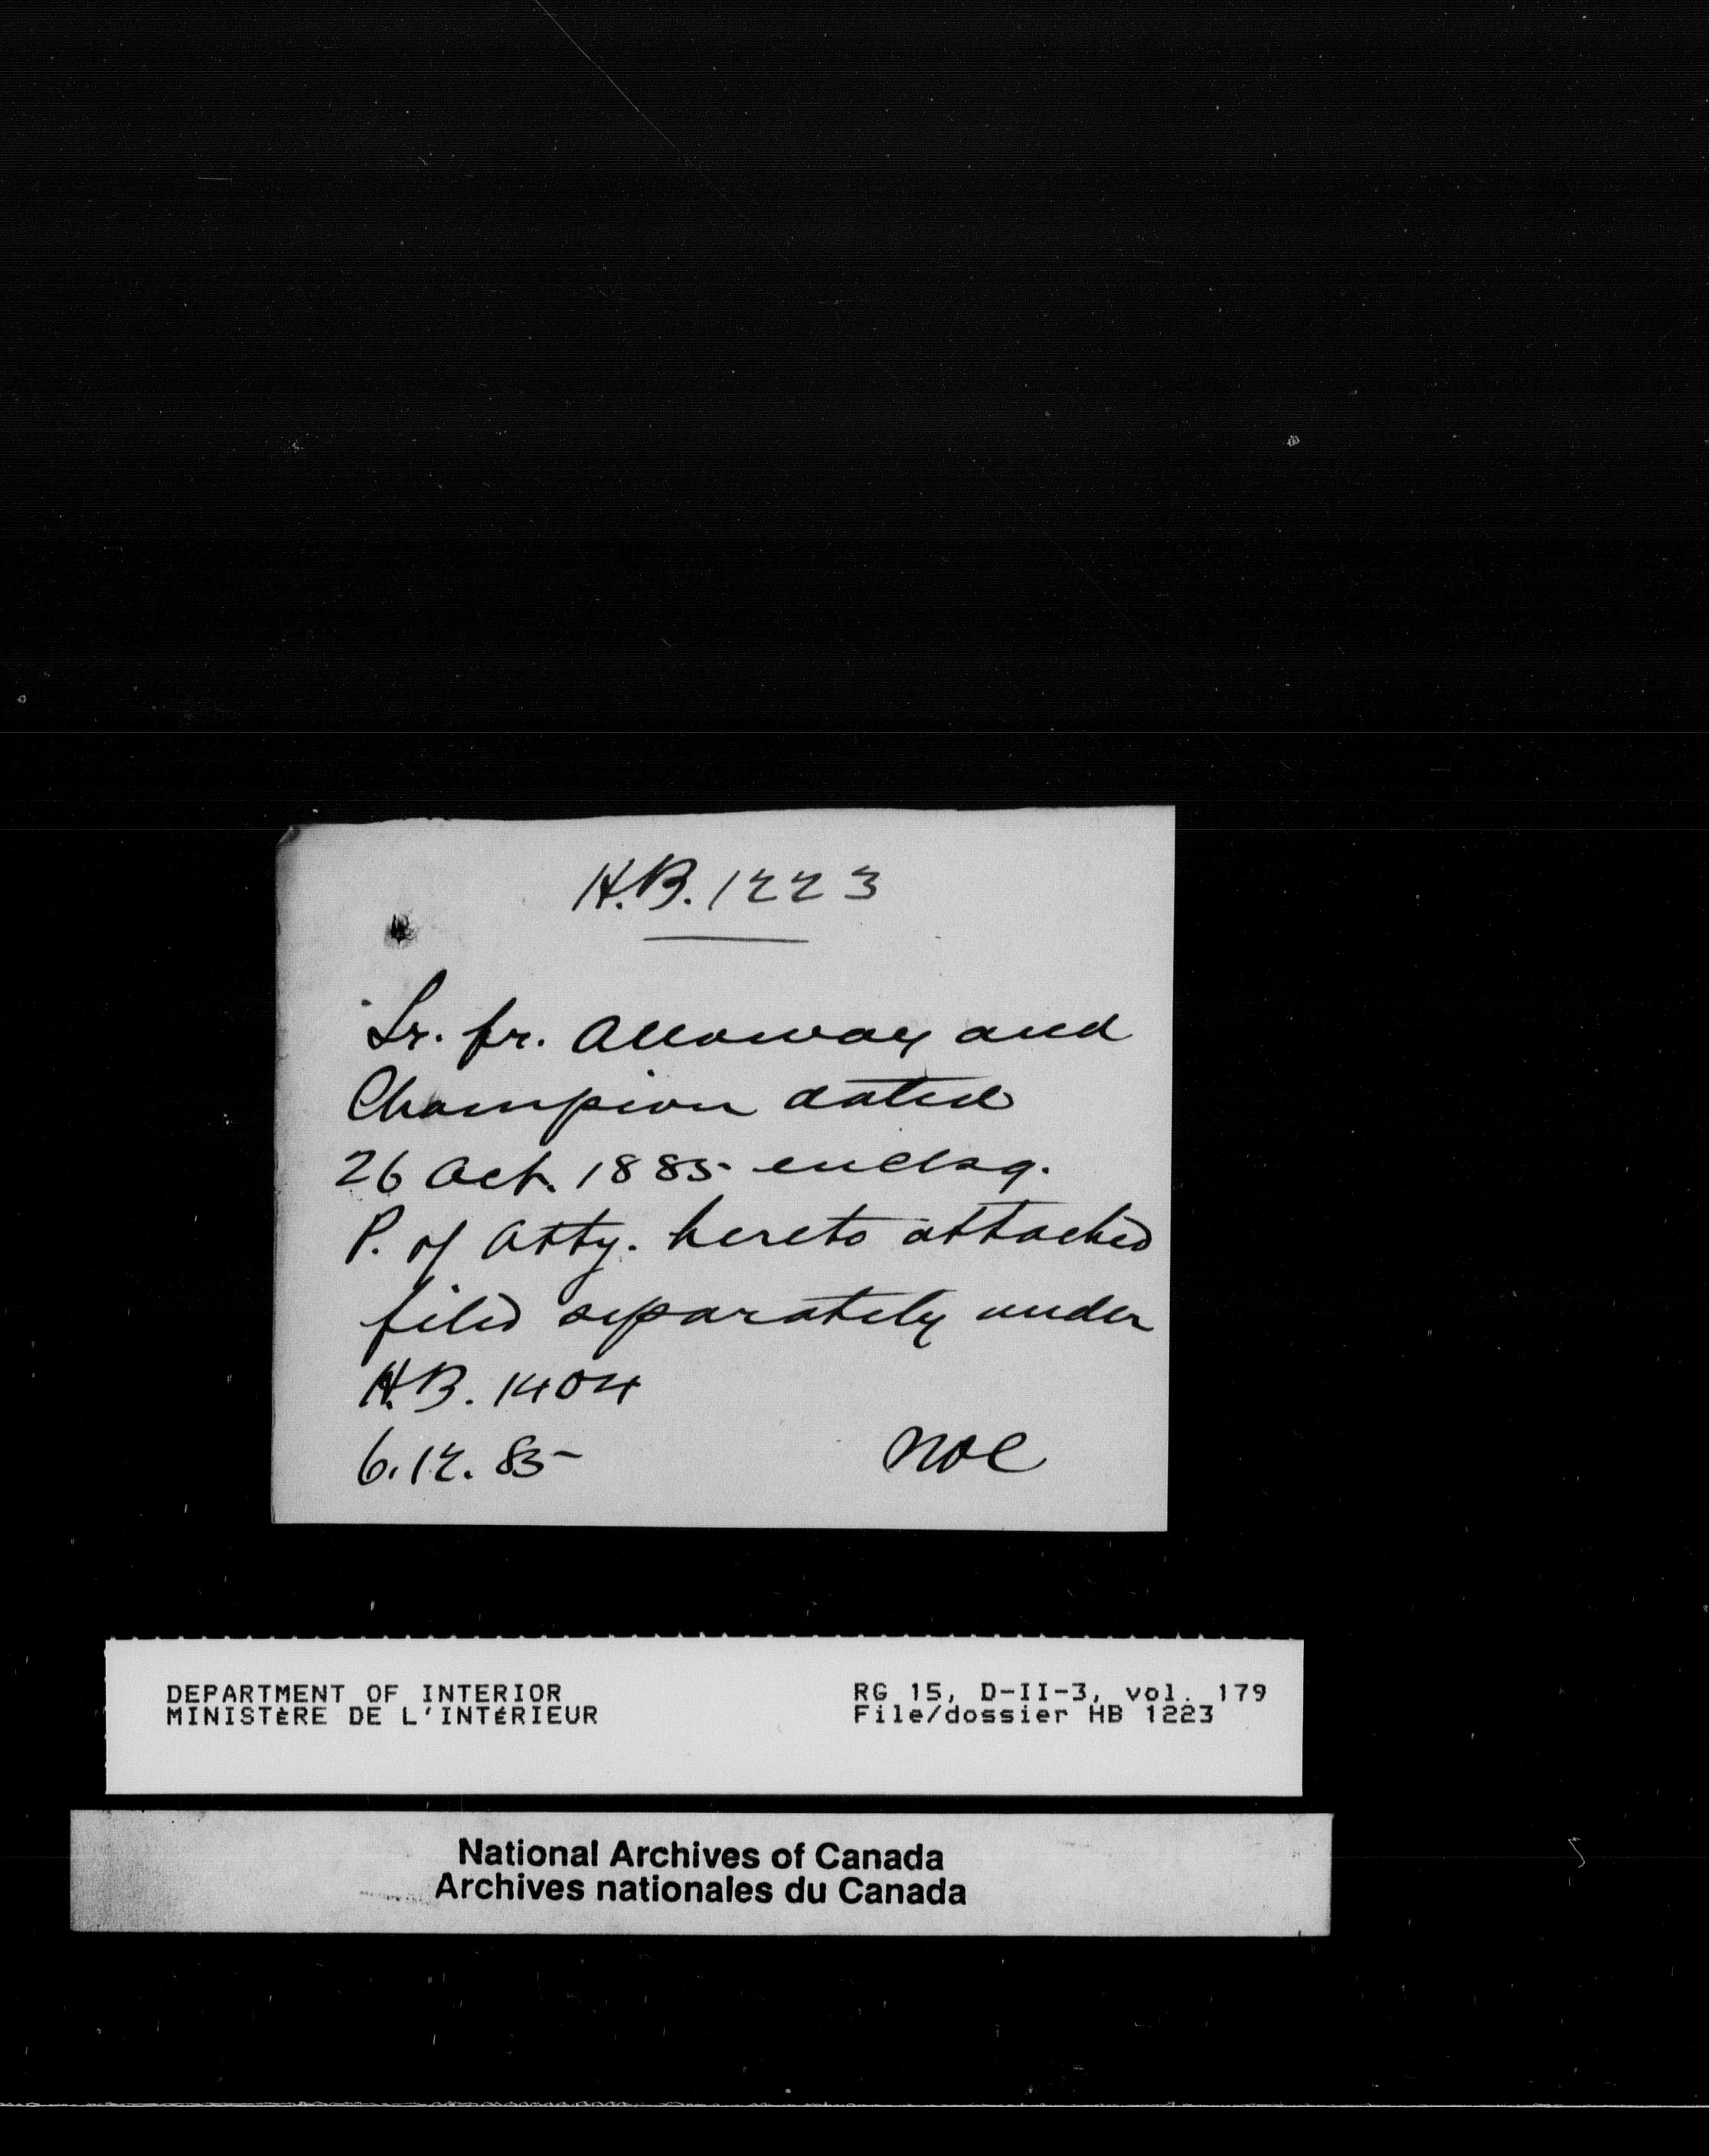 H.B. 1223
Lr. fr. Alloway and
Champion dated
26 Oct. 1885 enclsg.
P. of Atty. hereto attached
filed separately under
H.B. 1404
6.12.85
DEPARTMENT OF INTERIOR RG 15, D-II-3, vol. 179
MINISTÈRE DE L'INTÉRIEUR File/dossier HB 1223
National Archives of Canada
Archives nationales du Canada